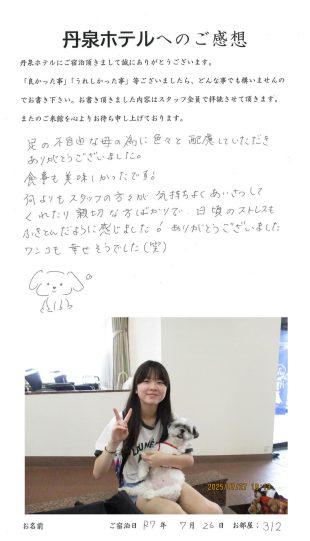 丹泉ホテルへのご感想
丹泉ホテルにご宿泊頂きまして誠にありがとうございます。
「良かった事」「うれしかった事」等ございましたら、どんな事でも構いませんの
でお書き下さい。お書き頂きました内容はスタッフ全員で拝読させて頂きます。
またのご来館を心よりお待ち申し上げております。
足の不自由な母の為に色々と配慮していただき
ありがとうございました。
食事も美味しかったです!
何よりもスタッフの方々が気持ちよくあいさつして
くれたり親切な方ばかりで、日頃のストレスも
ふきとんだように感じました! ありがとうございました
ワンコも幸せそうでした(笑)
お名前 ご宿泊日 R7年 7月26日 お部屋; 312